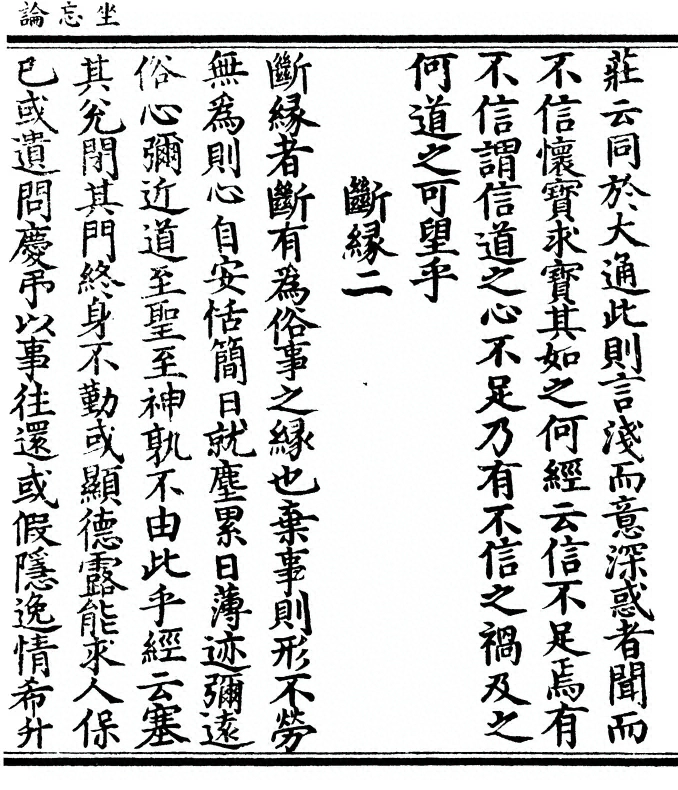 坐忘論
莊云同於大通此則言淺而意深惑者聞而
不信懷寶求寶其如之何經云信不足焉有
不信謂信道之心不足乃有不信之禍及之
何道之可望乎
斷緣二
斷緣者斷有為俗事之緣也棄事則形不勞
無為則心自安恬簡日就塵累日薄迹彌遠
俗心彌近道至聖至神孰不由此乎經云塞
其兊閉其門終身不勤或顯德露能求人保
已或遺問慶弔以事往還或假隱逸情希升